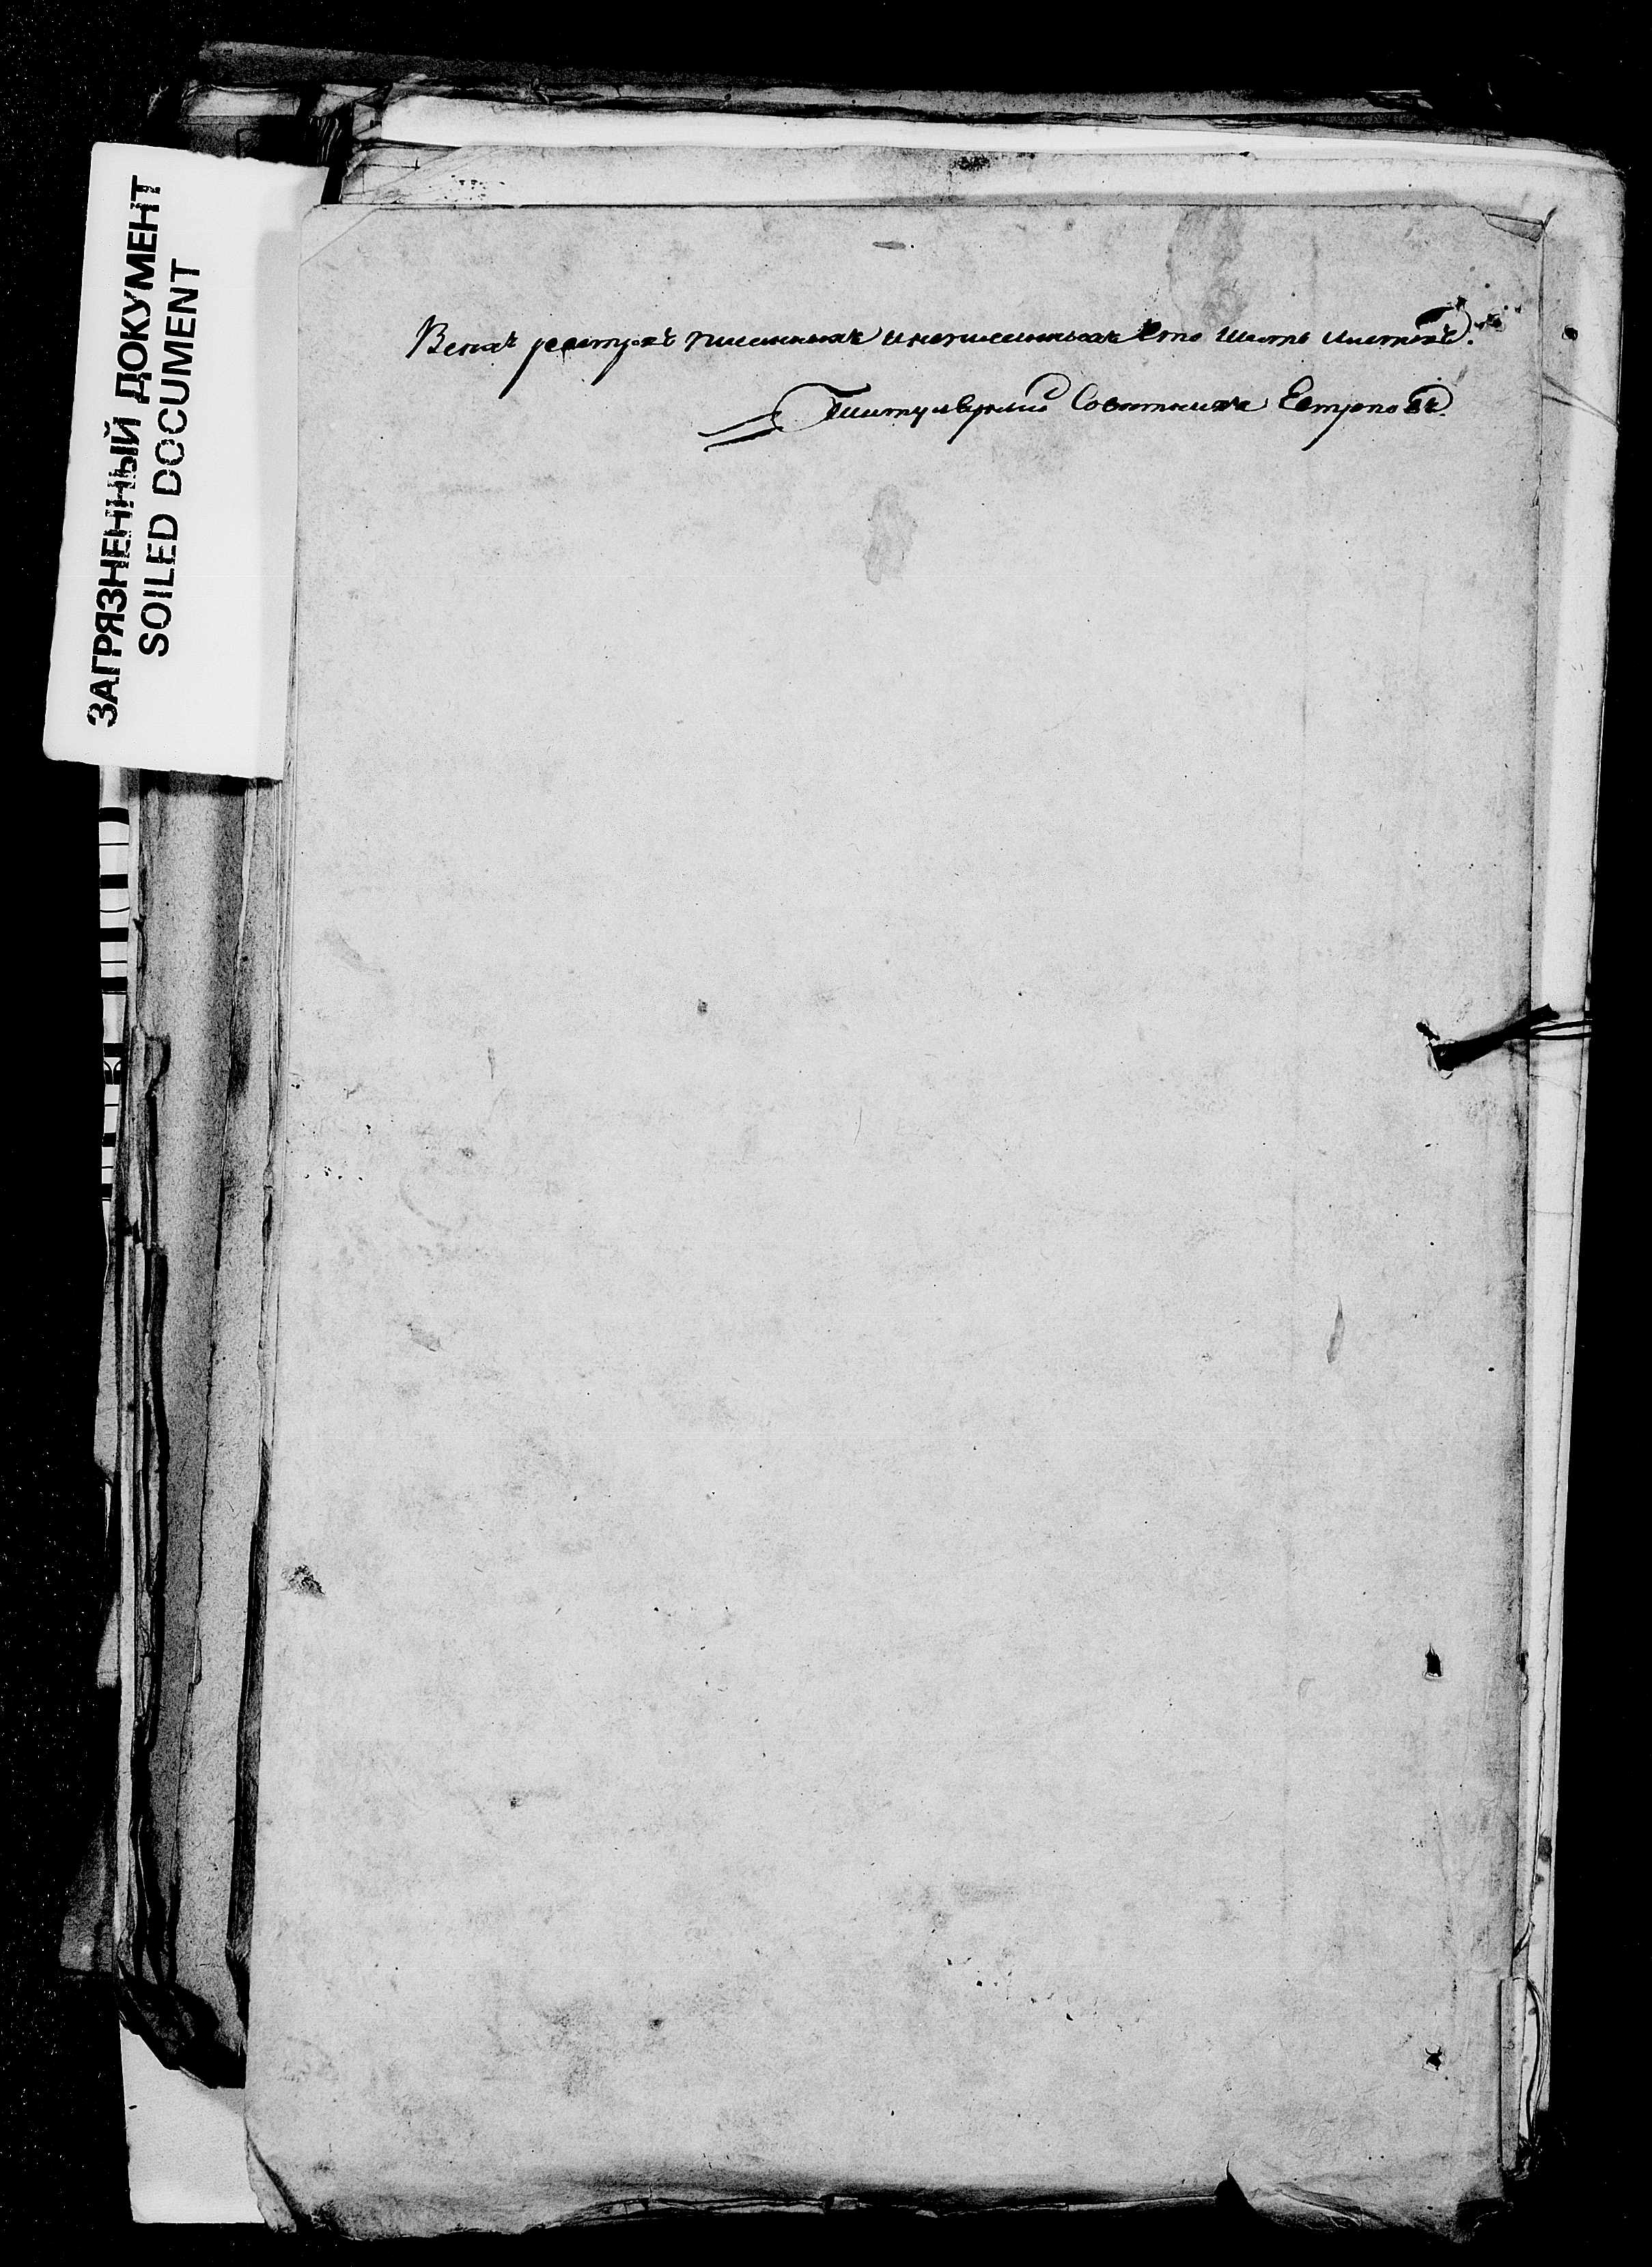 ЗАГРЯЗНЕННЫЙ ДОКУМЕНТ
SOILED DOCUMENT
Всехъ реестрахъ писанныхъ инеписанныхъ Сто шесть листовъ.
Титулярный Советникъ Евтроповъ